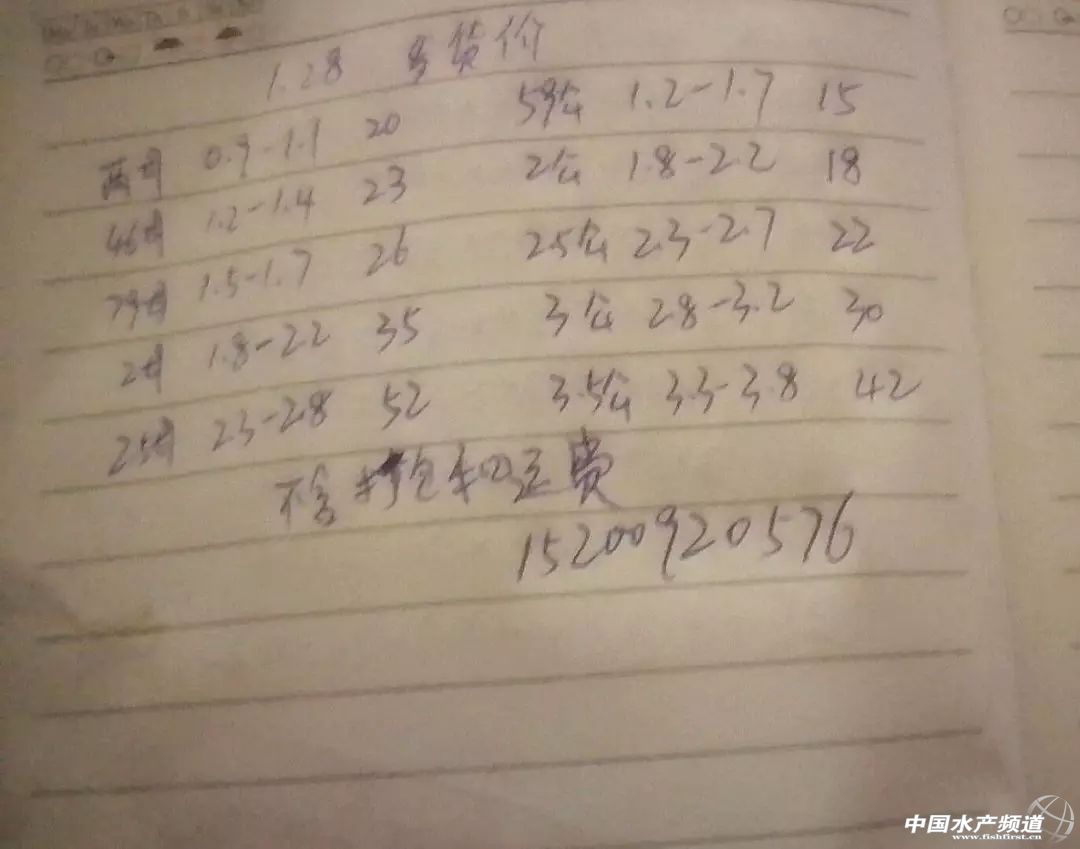 1.28 乌货价
两母 0.9-1.1 20 59公 1.2-1.7 15
46母 1.2-1.4 23 2公 1.8-2.2 18
79母 1.5-1.7 26 2.5公 2.3-2.7 22
2母 1.8-2.2 35 3公 2.8-3.2 30
25母 23-2.8 52 3.5公 3.3-3.8 42
不含 包和运费
15200920576
中国水产频道
www.fishfirst.cn